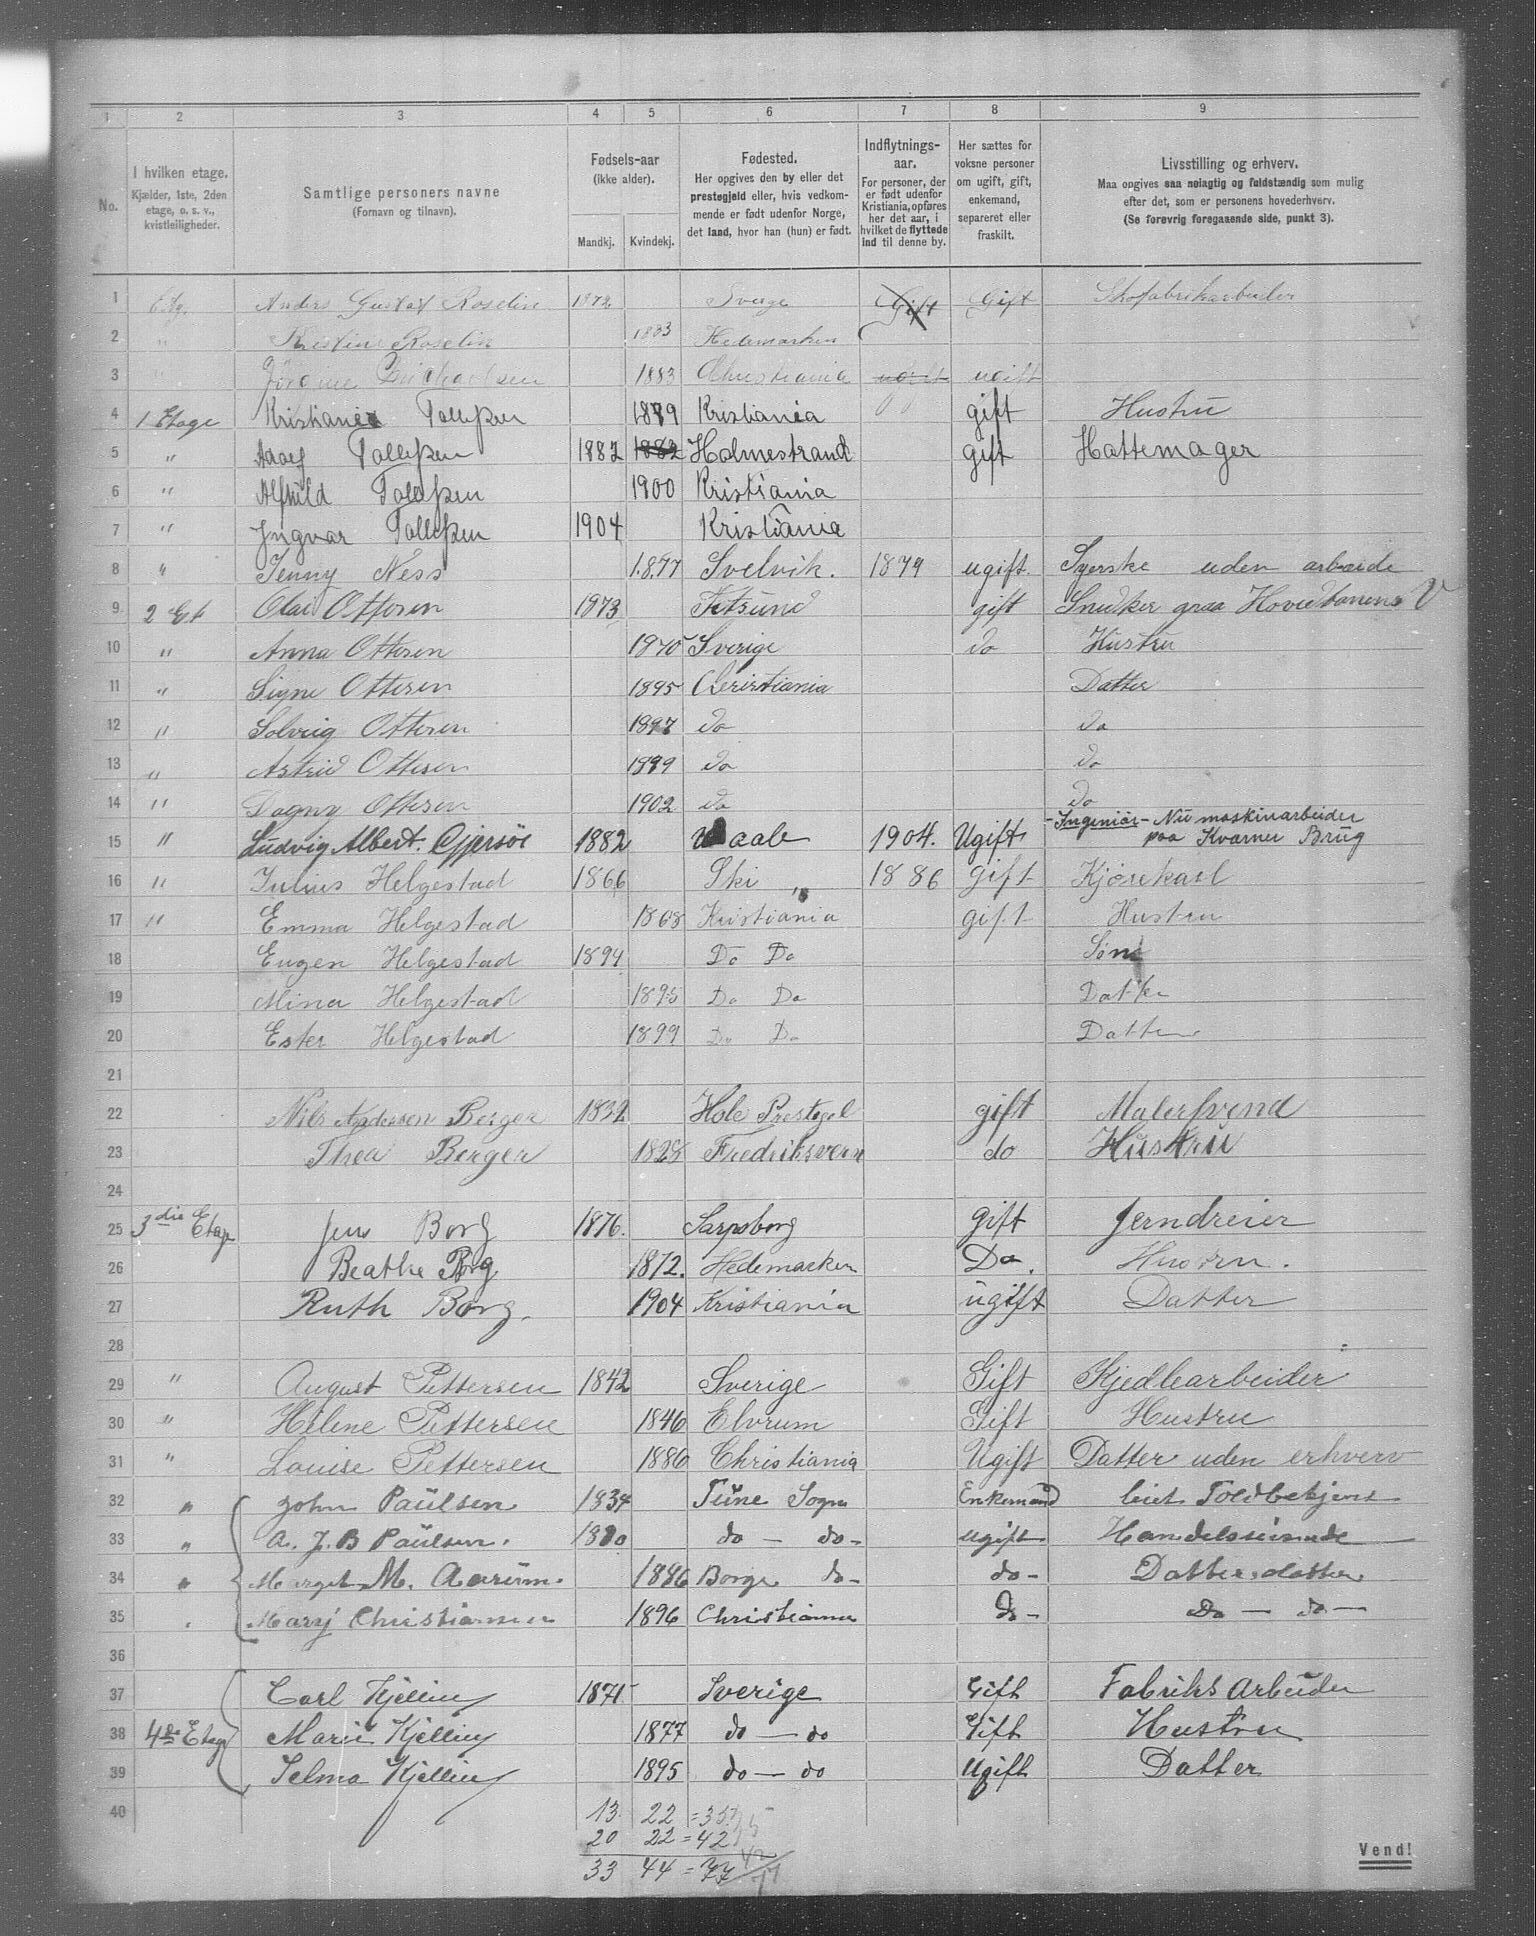 1 2 3 4 5 6 7 8 9
No.
I hvilken etage.
Kjælder, 1ste, 2den
etage, o. s. v.,
kvistleiligheder.
Samtlige personers navne
(Fornavn og tilnavn).
Fødsels-aar
(ikke alder).
Mandkj. Kvindekj.
Fødested.
Her opgives den by eller det
prestegjeld eller, hvis vedkom-
mende er født udenfor Norge,
det land, hvor han (hun) er født.
Indflytnings-
aar.
For personer, der
er født udenfor
Kristiania, opføres
her det aar, i
hvilket de flyttede
ind til denne by.
Her sættes for
voksne personer
om ugift, gift,
enkemand,
separeret eller
fraskilt.
Livsstilling og erhverv.
Maa opgives saa nøiagtig og fuldstændig som mulig
efter det, som er personens hovederhverv.
(Se forøvrig foregaaende side, punkt 3).
1 Etg. Anders Gustaf Roselin 1872 Sverge Gift Gift Skofabrikarbeider
2 " Kristine Roselin 1883 Hedemarken
3 " 1883 Christiania ugift ugift
4 1 Etage Kristiane Tollefsen 1879 Kristiania gift Hustru
5 " Adolf Tollefsen 1882 1882 Holmestrand gift Hattemager
6 " Alfhild Tollefsen 1900 Kristiania
7 " Ingvar Tollefsen 1904 Kristiania
8 " Jenny Ness 1877 Svelvik. 1879 ugift. Syerske uden arbeide
9 2 Et Olai Ottesen 1873 Fetsund gift Snedker paa Hovedbanens V
10 " Anna Ottesen 1870 Sverige do Hustru
11 " Signe Ottesen 1895 Christiania Datter
12 " Solveig Ottesen 1897 do do
13 " Astrid Ottesen 1899 do do
14 " Dagny Ottesen 1902 do do
15 " Ludvig Albert. Gjersøe 1882 Vaale 1904. Ugift -Ingeniør- Nu maskinarbeider
paa Kværner Brug
16 " Julius Helgestad 1866 Ski " 1886 gift Kjørekarl
17 " Emma Helgestad 1868 Kristiania gift Hustru
18 Eugen Helgestad 1894 Do Do Søn
19 Mina Helgestad 1895 Do Do Datter
20 Ester Helgestad 1899 Do Do Datter
21
22 Nils Andersen Berger 1832 Hole Prestegel gift Malersvend
23 Thea Berger 1828 Fredriksvern do Hustru
24
25 3die Etage Jens Borg 1876. Sarpsborg gift Jerndreier
26 Beathe Borg 1872. Hedemarken Do. Hustru.
27 Ruth Borg. 1904 Kristiania ugift Datter
28
29 " August Pettersen 1842 Sverige Gift Kjedlearbeider
30 " Helene Pettersen 1846 Elvrum Gift Hustru
31 " Louise Pettersen 1886 Christiania Ugift Datter uden erhverv
32 " John Paulsen 1834 Tune Sogn Enkemand leiet Toldbetjent
33 " A. J. B Paulsen. 1880 do - do- ugift
34 " Margit M. 1886 Borge do- do- Datterdatter
35 Mary Christiansen 1896 Christiania do- Do - do -
36
37 Carl Kjellin 1871 Sverige Gift Fabriks Arbeider
38 4de Etage Marie Kjellin 1877 do - do Gift Hustru
39 Selma Kjellin 1895 do - do Ugift Datter
40 13 22 = 35
20 22 = 42
33 44 = 77
Vend!